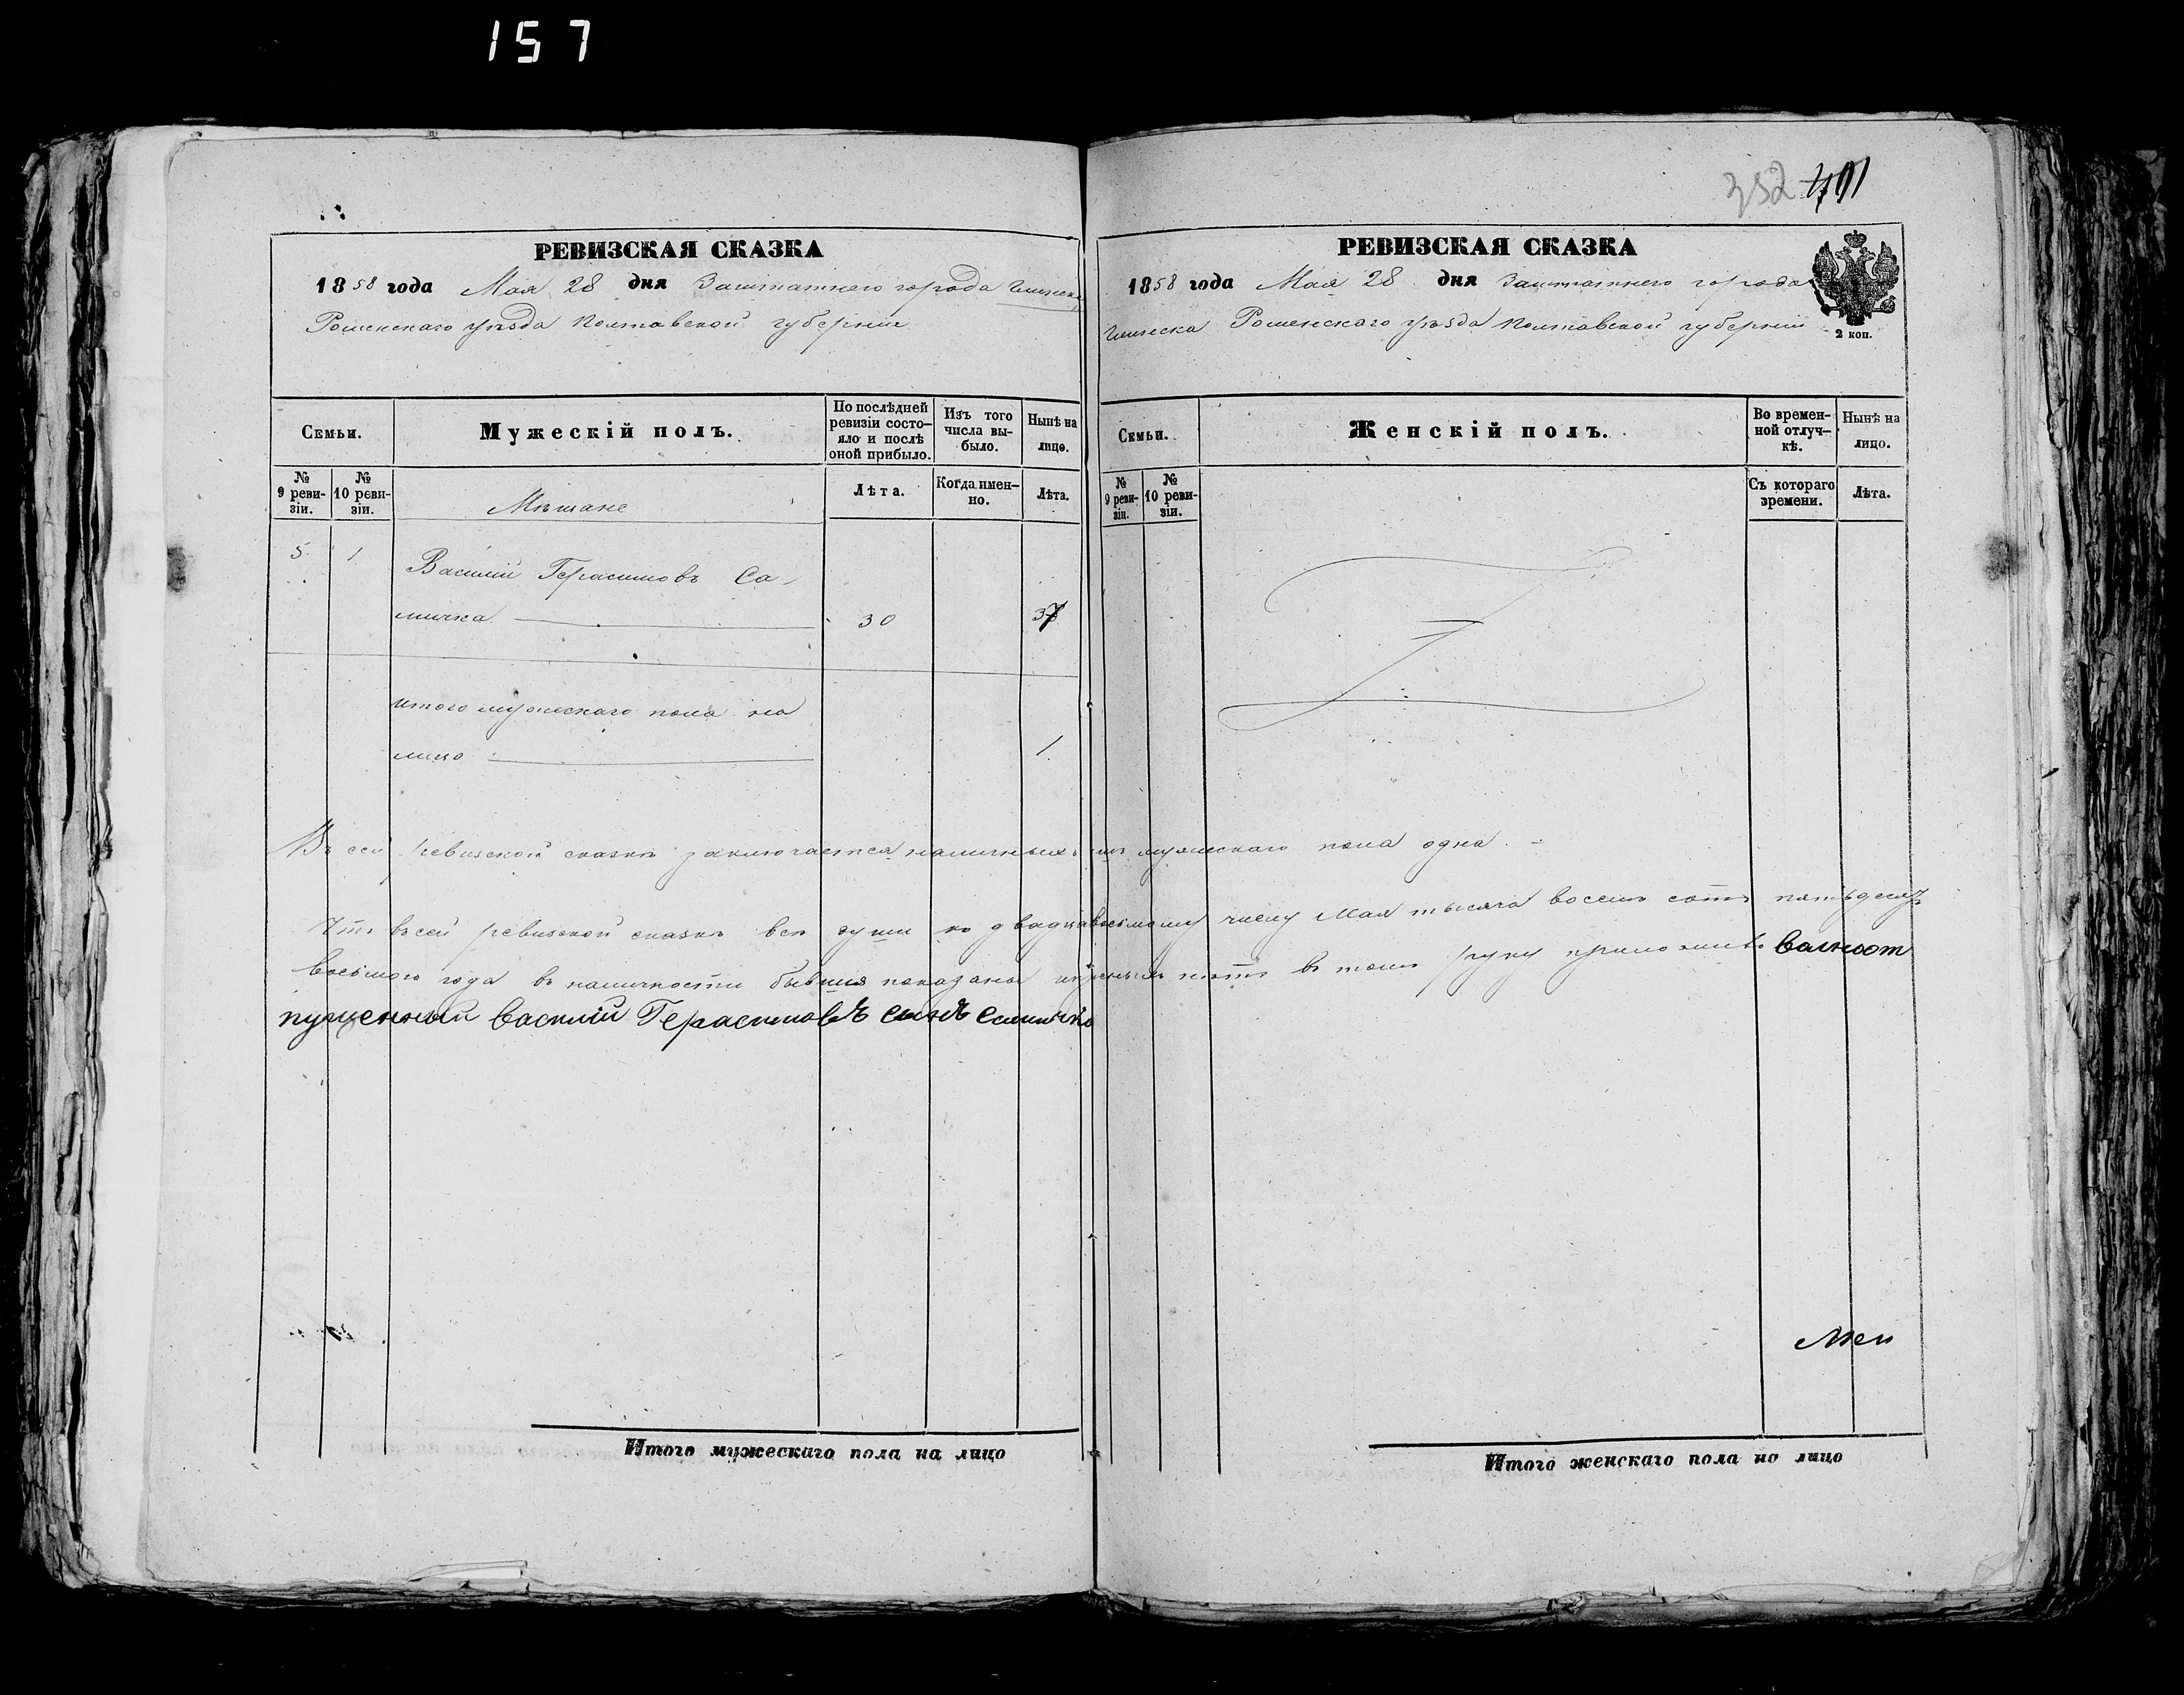 157
352 401
РЕВИЗСКАЯ СКАЗКА
1858 года Мая 28 дня Заштатнего города Глинска
Роменскаго уѣзда Полтавской губерніи
Семьи.
Мужескій полъ.
По послѣдней ревизіи состо-яло и послѣ оной прибыло.
Изъ того числа вы-было.
Нынѣ на лицо.
№ 9 реви-зіи.
№ 10 реви-зіи.
Мѣщане
Лѣта.
Когда имен-но.
Лѣта.
5 1 Василій Герасимовъ Са-
мичка 30 37
итого мужескаго пола на
лицо 1
РЕВИЗСКАЯ СКАЗКА
1858 года Мая 28 дня Заштатнего города
Глинска Роменскаго уѣзда Полтавской губерніи
2 коп.
Семьи.
Женскій полъ.
Во времен-ной отлуч-кѣ.
Нынѣ на лицо.
№ 9 реви-зіи.
№ 10 реви-зіи.
Съ котораго времени.
Лѣта.
Въ сей ревизской сказкѣ заключается наличныхъ мужескаго пола одна.
Что въ сей ревизской сказкѣ всѣ души по двадцавосьмому числу Мая тысяча восемь сотъ пятьдесятъ
восьмого года въ наличности бывшия показаны и нѣтъ въ томъ руку приложилъ вольноот
пущенный василій Герасимовъ сынъ Самичка
Итого мужескаго пола на лицо
Итого женскаго пола но лицо